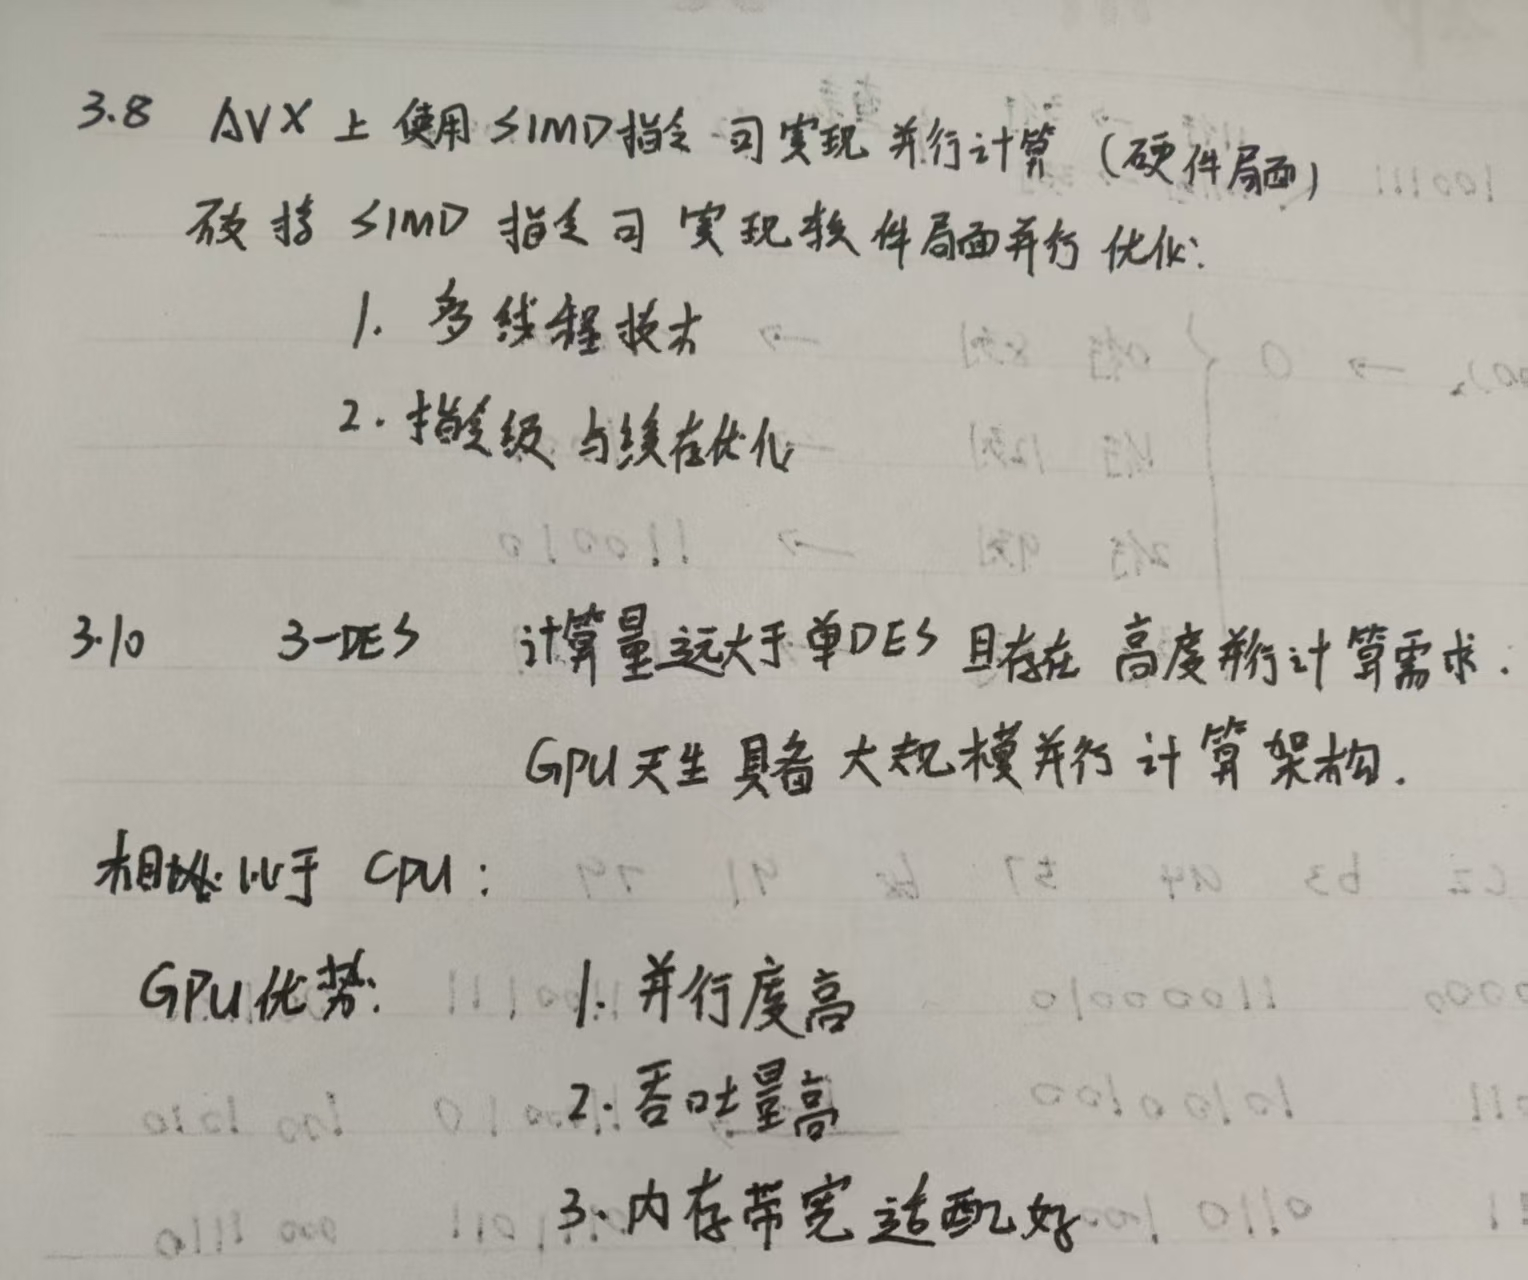 3.8 AVX 上使用SIMD指令可实现并行计算（硬件层面）
支持 SIMD 指令可实现软件层面并行优化：
1. 多线程技术
2. 指令级与缓存优化
3.10 3-DES 计算量远大于单DES且存在高度并行计算需求.
GPU天生具备大规模并行计算架构.
相比于 CPU：
GPU优势： 1. 并行度高
2. 吞吐量高
3. 内存带宽适配好